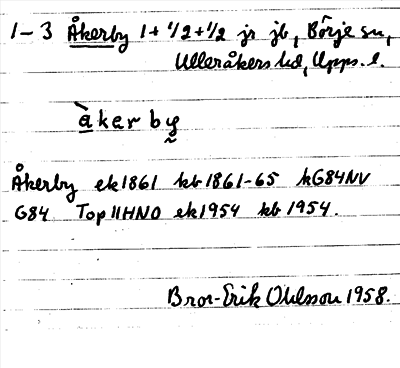 1-3 Åkerby 1+1/2+1/2 jr jb, Börje sn,
Ulleråkers hd, Upps. l.
àkerby̰
Åkerby ek1861 kb1861-65 kG84NV
G84 Top11HNO ek1954 kb1954.
Bror-Erik Ohlsson 1958.